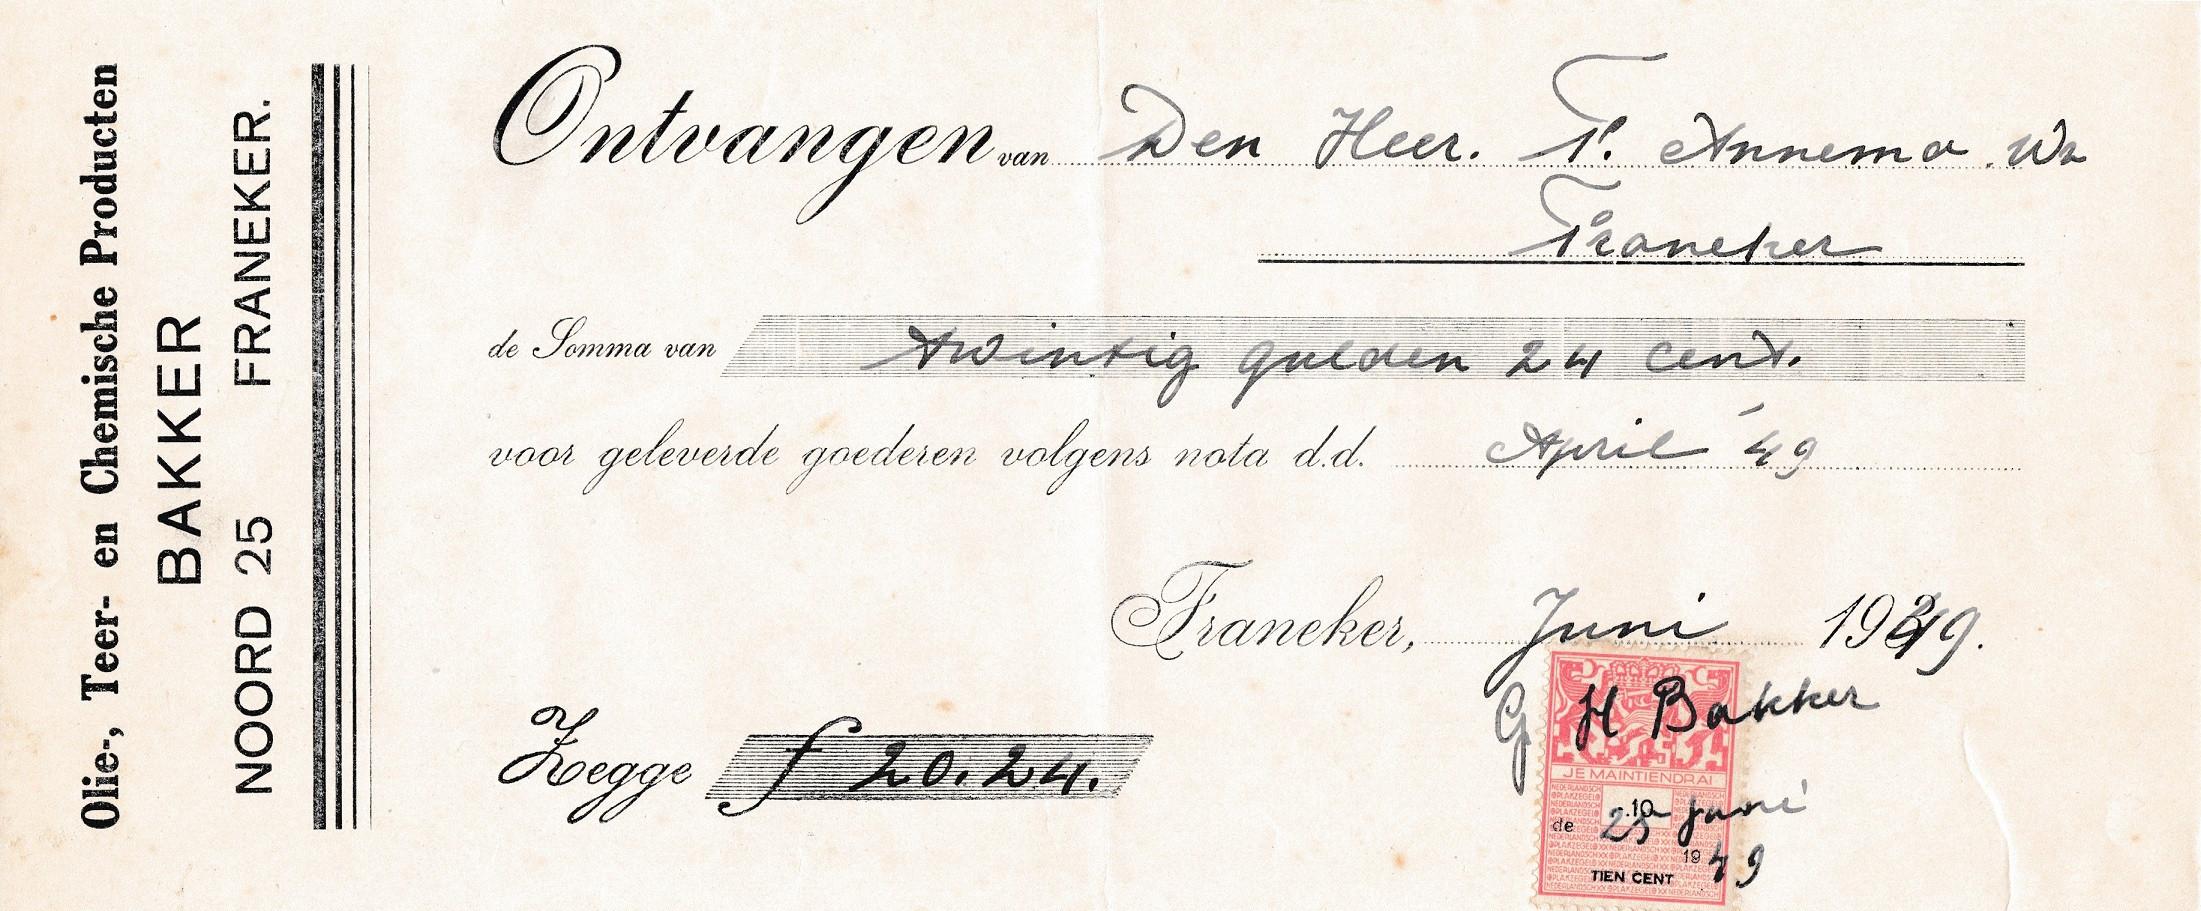 Olie-, Teer- en Chemische Producten
BAKKER
NOORD 25 FRANEKER.
Ontvangen van Den Heer. T. Annema
Franeker
de Somma van twintig gulden 24 cent.
voor geleverde goederen volgens nota d.d. April '49
Franeker, Juni 1949.
G H Bakker
Zegge f 20.24.
JE MAINTIENDRAI
.10
de 25 juni
1949
TIEN CENT